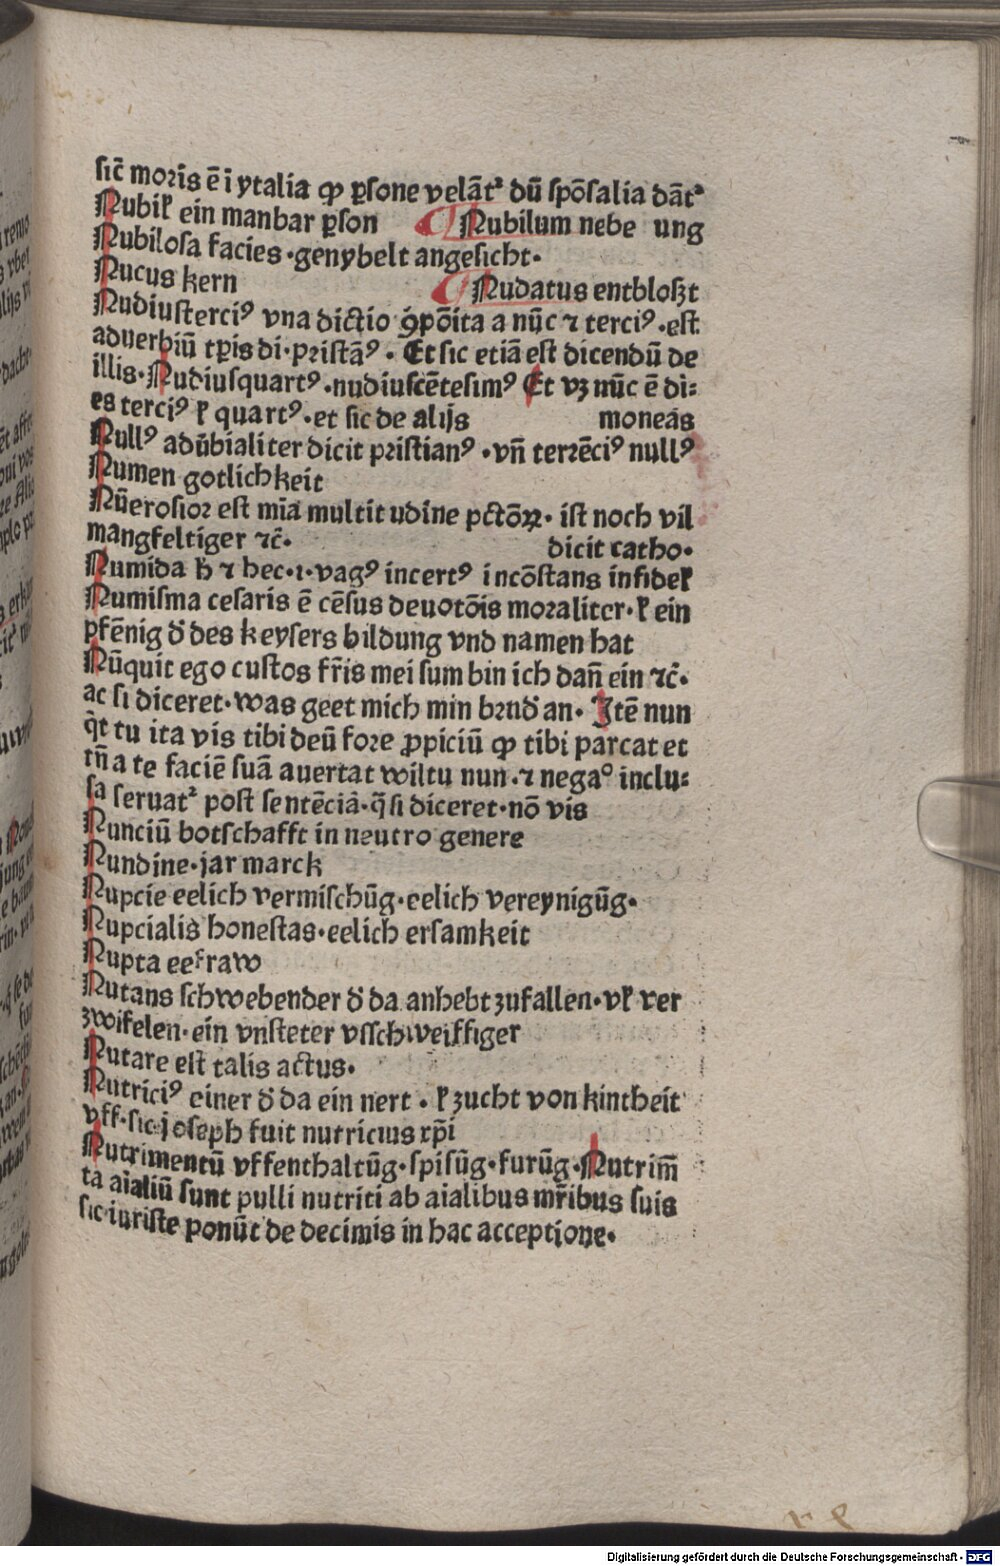 sic̄ moris ē i ytalia ꝙ ꝑsone velāt᷑ dū spōsalia dāt᷑
Nubił ein manbar ꝑson ¶ Nubilum nebe ung
Nubilosa facies ·genybelt angesicht·
Nucus kern ¶ Nudatus entbloszt
Nudiusterciꝰ vna dictio ꝯpōita a nūc ⁊ terciꝰ ·est
aduerbiū tꝑis di·pristāꝰ · Et sic etiā est dicendū de
illis·Nudiusquartꝰ·nudiuscētesimꝰ Et vꝫ nūc ē di⸗
es terciꝰ ł quartꝰ·et sic de alijs moneas
Nullꝰ adūbialiter dicit pristianꝰ ·vn̄ terrēciꝰ nullꝰ
Numen gotlichkeit
Nūerosior est mīa multitudine pctōꝝ· ist noch vil
mangfeltiger ⁊c̄· dicit catho·
Numida h̄ ⁊ hec·i·vagꝰ incertꝰ incōstans infideł
Numisma cesaris ē cēsus deuotōis moraliter·ł ein
pfēnig d̄ des keysers bildung vnd namen hat
Nūquit ego custos fr̄is mei sum bin ich dan̄ ein ⁊c̄·
ac si diceret·was geet mich min brud̄ an· Itē nun
q̄t tu ita vis tibi deū fore ꝓpiciū ꝙ tibi parcat et
tn̄ a te faciē suā auertat wiltu nun·⁊ negaº inclu⸗
sa seruat᷑ post sentēciā·q̄si diceret·nō vis
Nunciū botschafft in neutro genere
Nundine·jar marck
Nupcie eelich vermischūg·eelich vereynigūg·
Nupcialis honestas·eelich ersamkeit
Nupta eefraw
Nutans schwebender d̄ da anhebt zufallen·vł ver
zwifelen·ein vnsteter vsschweiffiger
Nutare est talis actus·
Nutriciꝰ einer d̄ da ein nert · ł zucht von kintheit
vff·sic·joseph fuit nutricius xp̄i
Nutrimentū vffenthaltūg·spisūg·furūg·Nutrim̄
ta aīaliū sunt pulli nutriti ab aīalibus mr̄ibus suis
sic iuriste ponūt de decimis in hac acceptione·
Digitalisierung gefördert durch die Deutsche Forschungsgemeinschaft - DFG